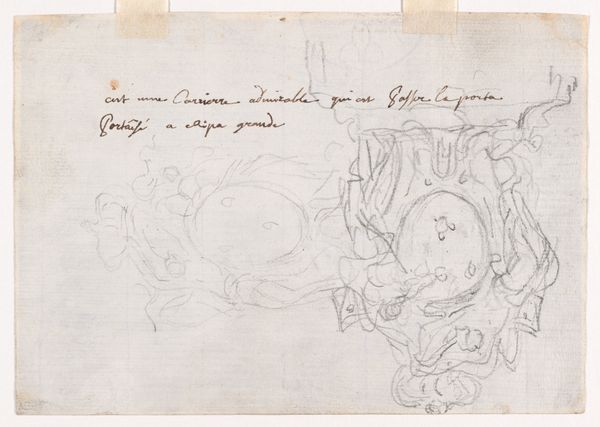 cest une Carriere admirable qui est Passer la porta
Portese a Ripa grande